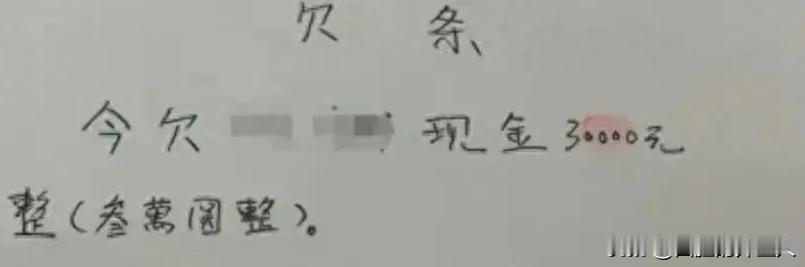 欠条
今欠 现金30000元
整(叁萬圆整)。